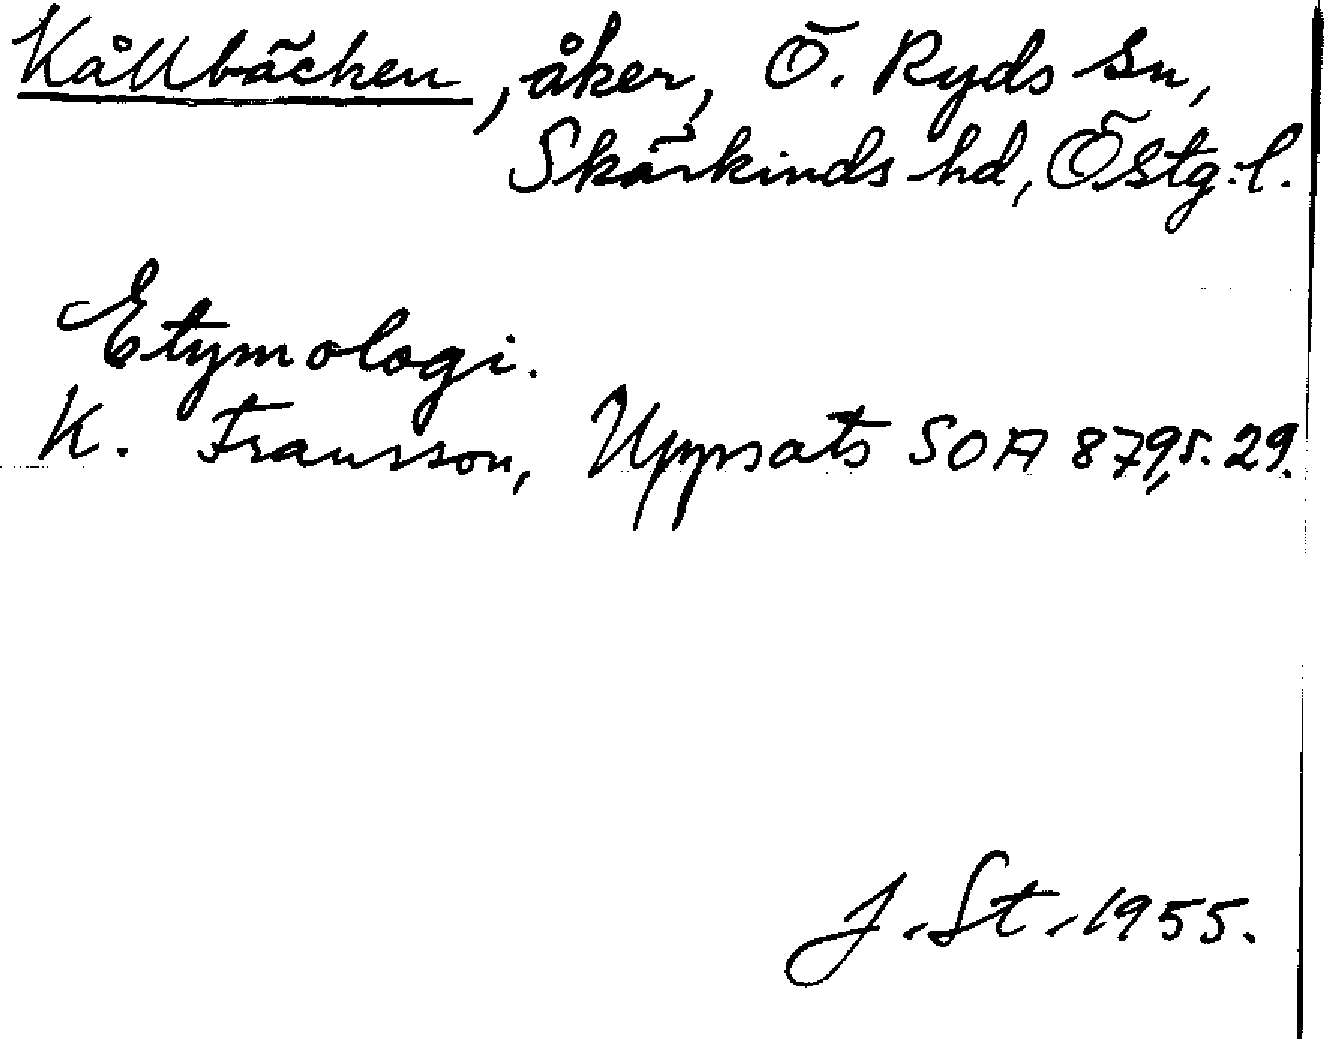 Kållbäcken, åker, Ö. Ryds sn,
Skärkinds hd, Östg. l.
Etymologi.
K. Fransson, Uppsats SOA 879, s. 29.
J. St. 1955.